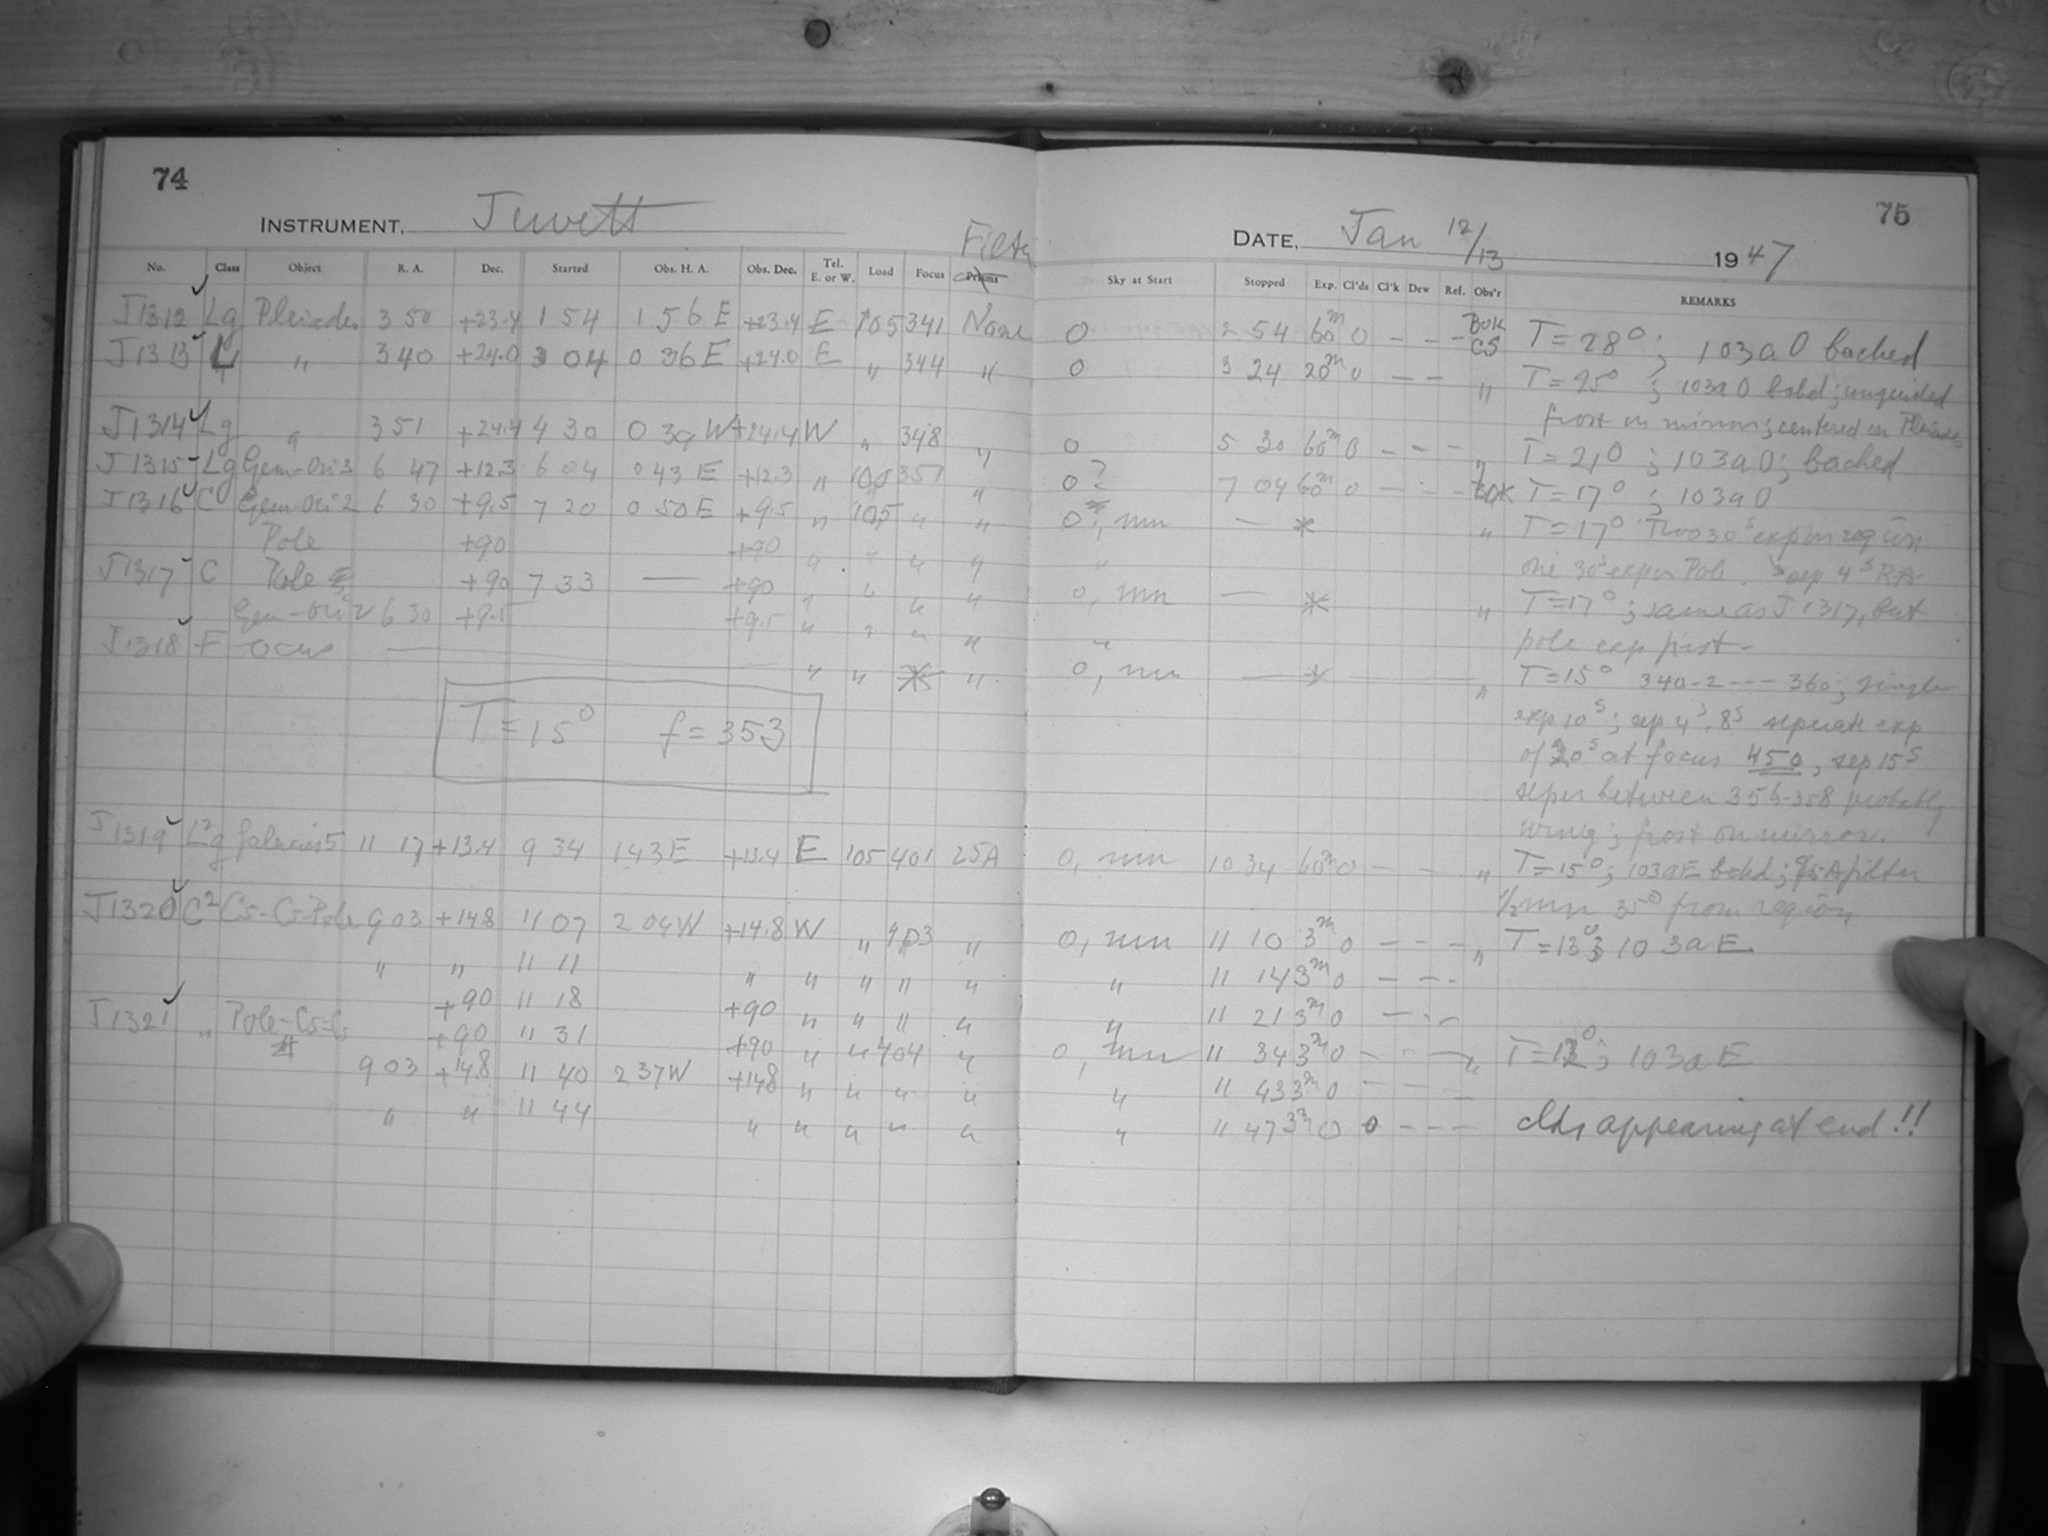 74
INSTRUMENT. Jewett
Filter
No. Class Object R. A. Dec. Started Obs. H. A. Obs. Dec. Tel. E. or W. Load Focus Prisms
J1312 Lg Pleiades 3 50 +23.4 1 54 1 56 E +23.4 E 105 341 None
J1313 L " 3 40 +24.0 3 04 0 36 E +24.0 E " 344 "
J1314 Lg " 3 51 +24.4 4 30 0 39 W +24.4 W " 348 "
J1315 Lg Gem-Ori 3 6 47 +12.3 6 04 0 43 E +12.3 " 105 351 "
J1316 C Gem-Ori 2 6 30 +9.5 7 20 0 50 E +9.5 " 105 " "
Pole +90 +90 " " " "
J1317 C Pole +90 7 33 — +90 " " " "
Gem-Ori 2 6 30 +9.5 +9.5 " " " "
J1318 F Focus — " " * "
T=15° f=353
J1319 L²g Galaxies 5 11 17 +13.4 9 34 1 43 E +13.4 E 105 401 25A
J1320 C² C5-C5-Pole 9 03 +14.8 11 07 2 04 W +14.8 W " 403 "
" " 11 11 " " " " "
+90 11 18 +90 " " " "
J1321 " Pole-C5-C5 +90 11 31 +90 " " 404 "
9 03 +14.8 11 40 2 37 W +14.8 " " " "
" " 11 44 " " " " "
75
DATE, Jan 12/13 1947
Sky at Start Stopped Exp. Cl'ds Cl'k Dew Ref. Obs'r REMARKS
0 2 54 60m 0 - - - BOK CS T=28°; 103a0 backed
0 3 24 20m 0 - - " T=25°; 103a0 bakd; unguided
frost on mirror; centered on Pleiades
0 5 30 60m 0 - - - " T=21°; 103a0; backed
0? 7 04 60m 0 - - - BOK T=17°; 103a0
0, mn — * " T=17° Two 30s exp on region
" one 30s exp on Pole. sep 4s RA
0, mn — * " T=17°; same as J1317, but
" pole exp first -
0, mn — * — " T=15° 340-2 --- 360; single
exp 10s; sep 4s, 8s separate exp
of 20s at focus 450, sep 15s
seper between 356-358 probably
wrong; frost on mirror.
0, mn 10 34 60m 0 - - " T=15°; 103aE bakd; 25A filter
1/2 mn 35° from region
0, mn 11 10 3m 0 - - - " T=13°; 103aE
" 11 14 3m 0 - - -
" 11 21 3m 0 - - -
0, mn 11 34 3m 0 - - - " T=12°; 103aE
" 11 43 3m 0 - - -
" 11 47 3m 0 0 - - - clds appearing at end!!